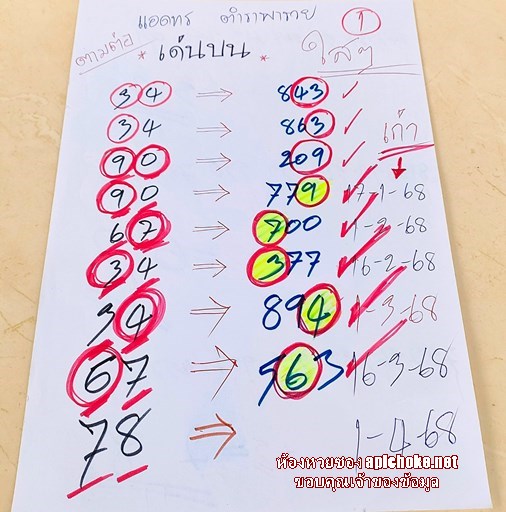 แอดทร ตำราพารวย 1
ตามต่อ * เด่นบน * ใสๆ
34 → 843 ✓
34 → 863 ✓ เก่า
90 → 209 ✓
90 → 779 ✓ 17-1-68
67 → 700 ✓ 1-2-68
34 → 377 ✓ 16-2-68
34 → 894 ✓ 1-3-68
67 → 563 ✓ 16-3-68
78 → 1-4-68
ห้องหวยซอง aplchoke.net
ขอบคุณเจ้าของข้อมูล